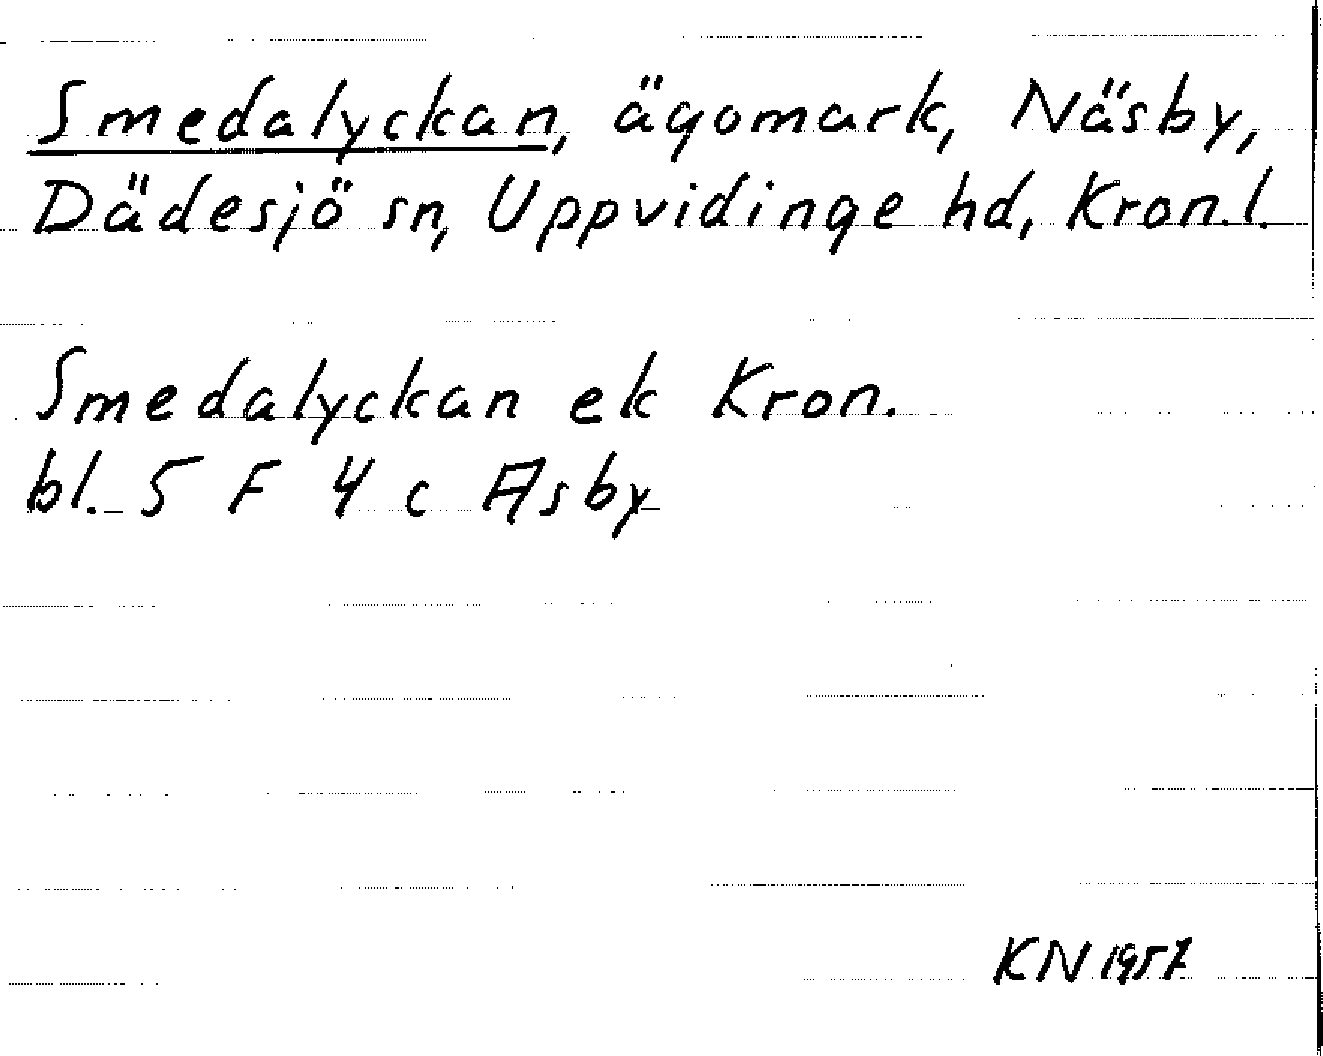 Smedalyckan, ägomark, Näsby,
Dädesjö sn, Uppvidinge hd, Kron.l.
Smedalyckan ek Kron.
bl. 5 F 4 c Asby
KN 1957